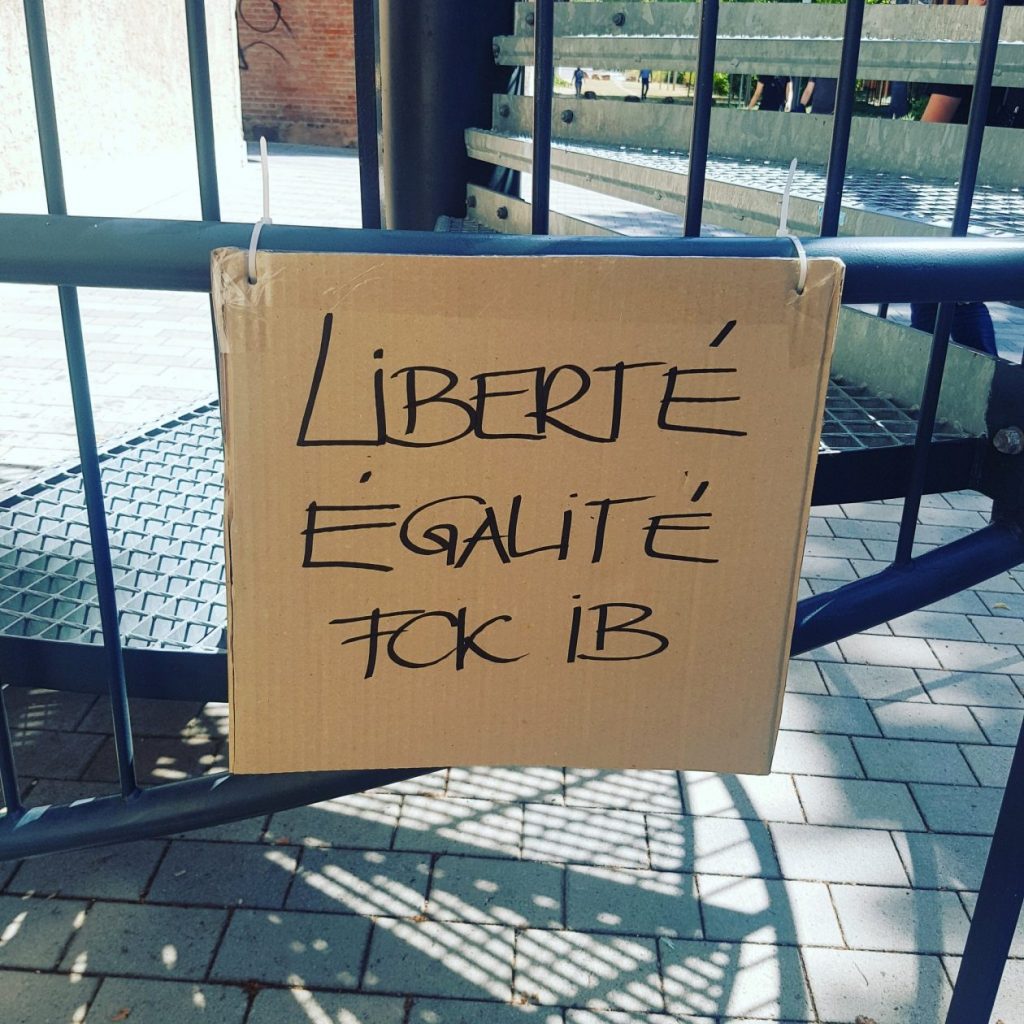 LiBERTÉ
ÉGALiTÉ
FCK iB